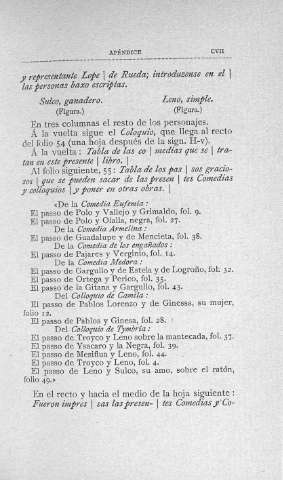 APÉNDICE CVII
y representante Lope | de Rueda; introduzense en el |
las personas baxo escriptas.
Sulco, ganadero. Leno, simple.
(Figura.) (Figura.)
En tres columnas el resto de los personajes.
Á la vuelta sigue el Coloquio, que llega al recto
del folio 54 (una hoja después de la sign. H-v).
Á la vuelta: Tabla de las co | medias que se | tra-
tan en este presente | libro. |
Al folio siguiente, 55: Tabla de los pas | sos gracio-
sos | que se pueden sacar de las presen | tes Comedias
y colloquios | y poner en otras obras. |
«De la Comedia Eufemia:
El passo de Polo y Vallejo y Grimaldo, fol. 9.
El passo de Polo y Olalla, negra, fol. 27.
De la Comedia Armelina:
El passo de Guadalupe y de Mencieta, fol. 38.
De la Comedia de los engañados:
El passo de Pajares y Verginio, fol. 14.
De la Comedia Medora:
El passo de Gargullo y de Estela y de Logroño, fol. 32.
El passo de Ortega y Perico, fol. 35.
El passo de la Gitana y Gargullo, fol. 43.
Del Colloquio de Camila:
El passo de Pablos Lorenzo y de Ginessa, su mujer,
folio 12.
El passo de Pablos y Ginesa, fol. 28.
Del Colloquio de Tymbria:
El passo de Troyco y Leno sobre la mantecada, fol. 37.
El passo de Ysacaro y la Negra, fol. 39.
El passo de Mesiflua y Leno, fol. 44.
El passo de Troyco y Leno, fol. 4.
El passo de Leno y Sulco, su amo, sobre el ratón,
folio 49.»
En el recto y hacia el medio de la hoja siguiente:
Fueron impres | sas las presen- | tes Comedias y Co-